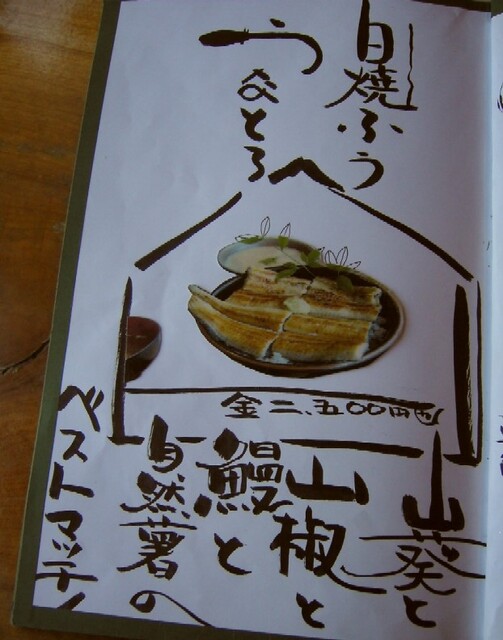 白焼ふう
うなとろ
金二、五〇〇円
山葵と
山椒と
鰻と
自然薯の
ベストマッチ!